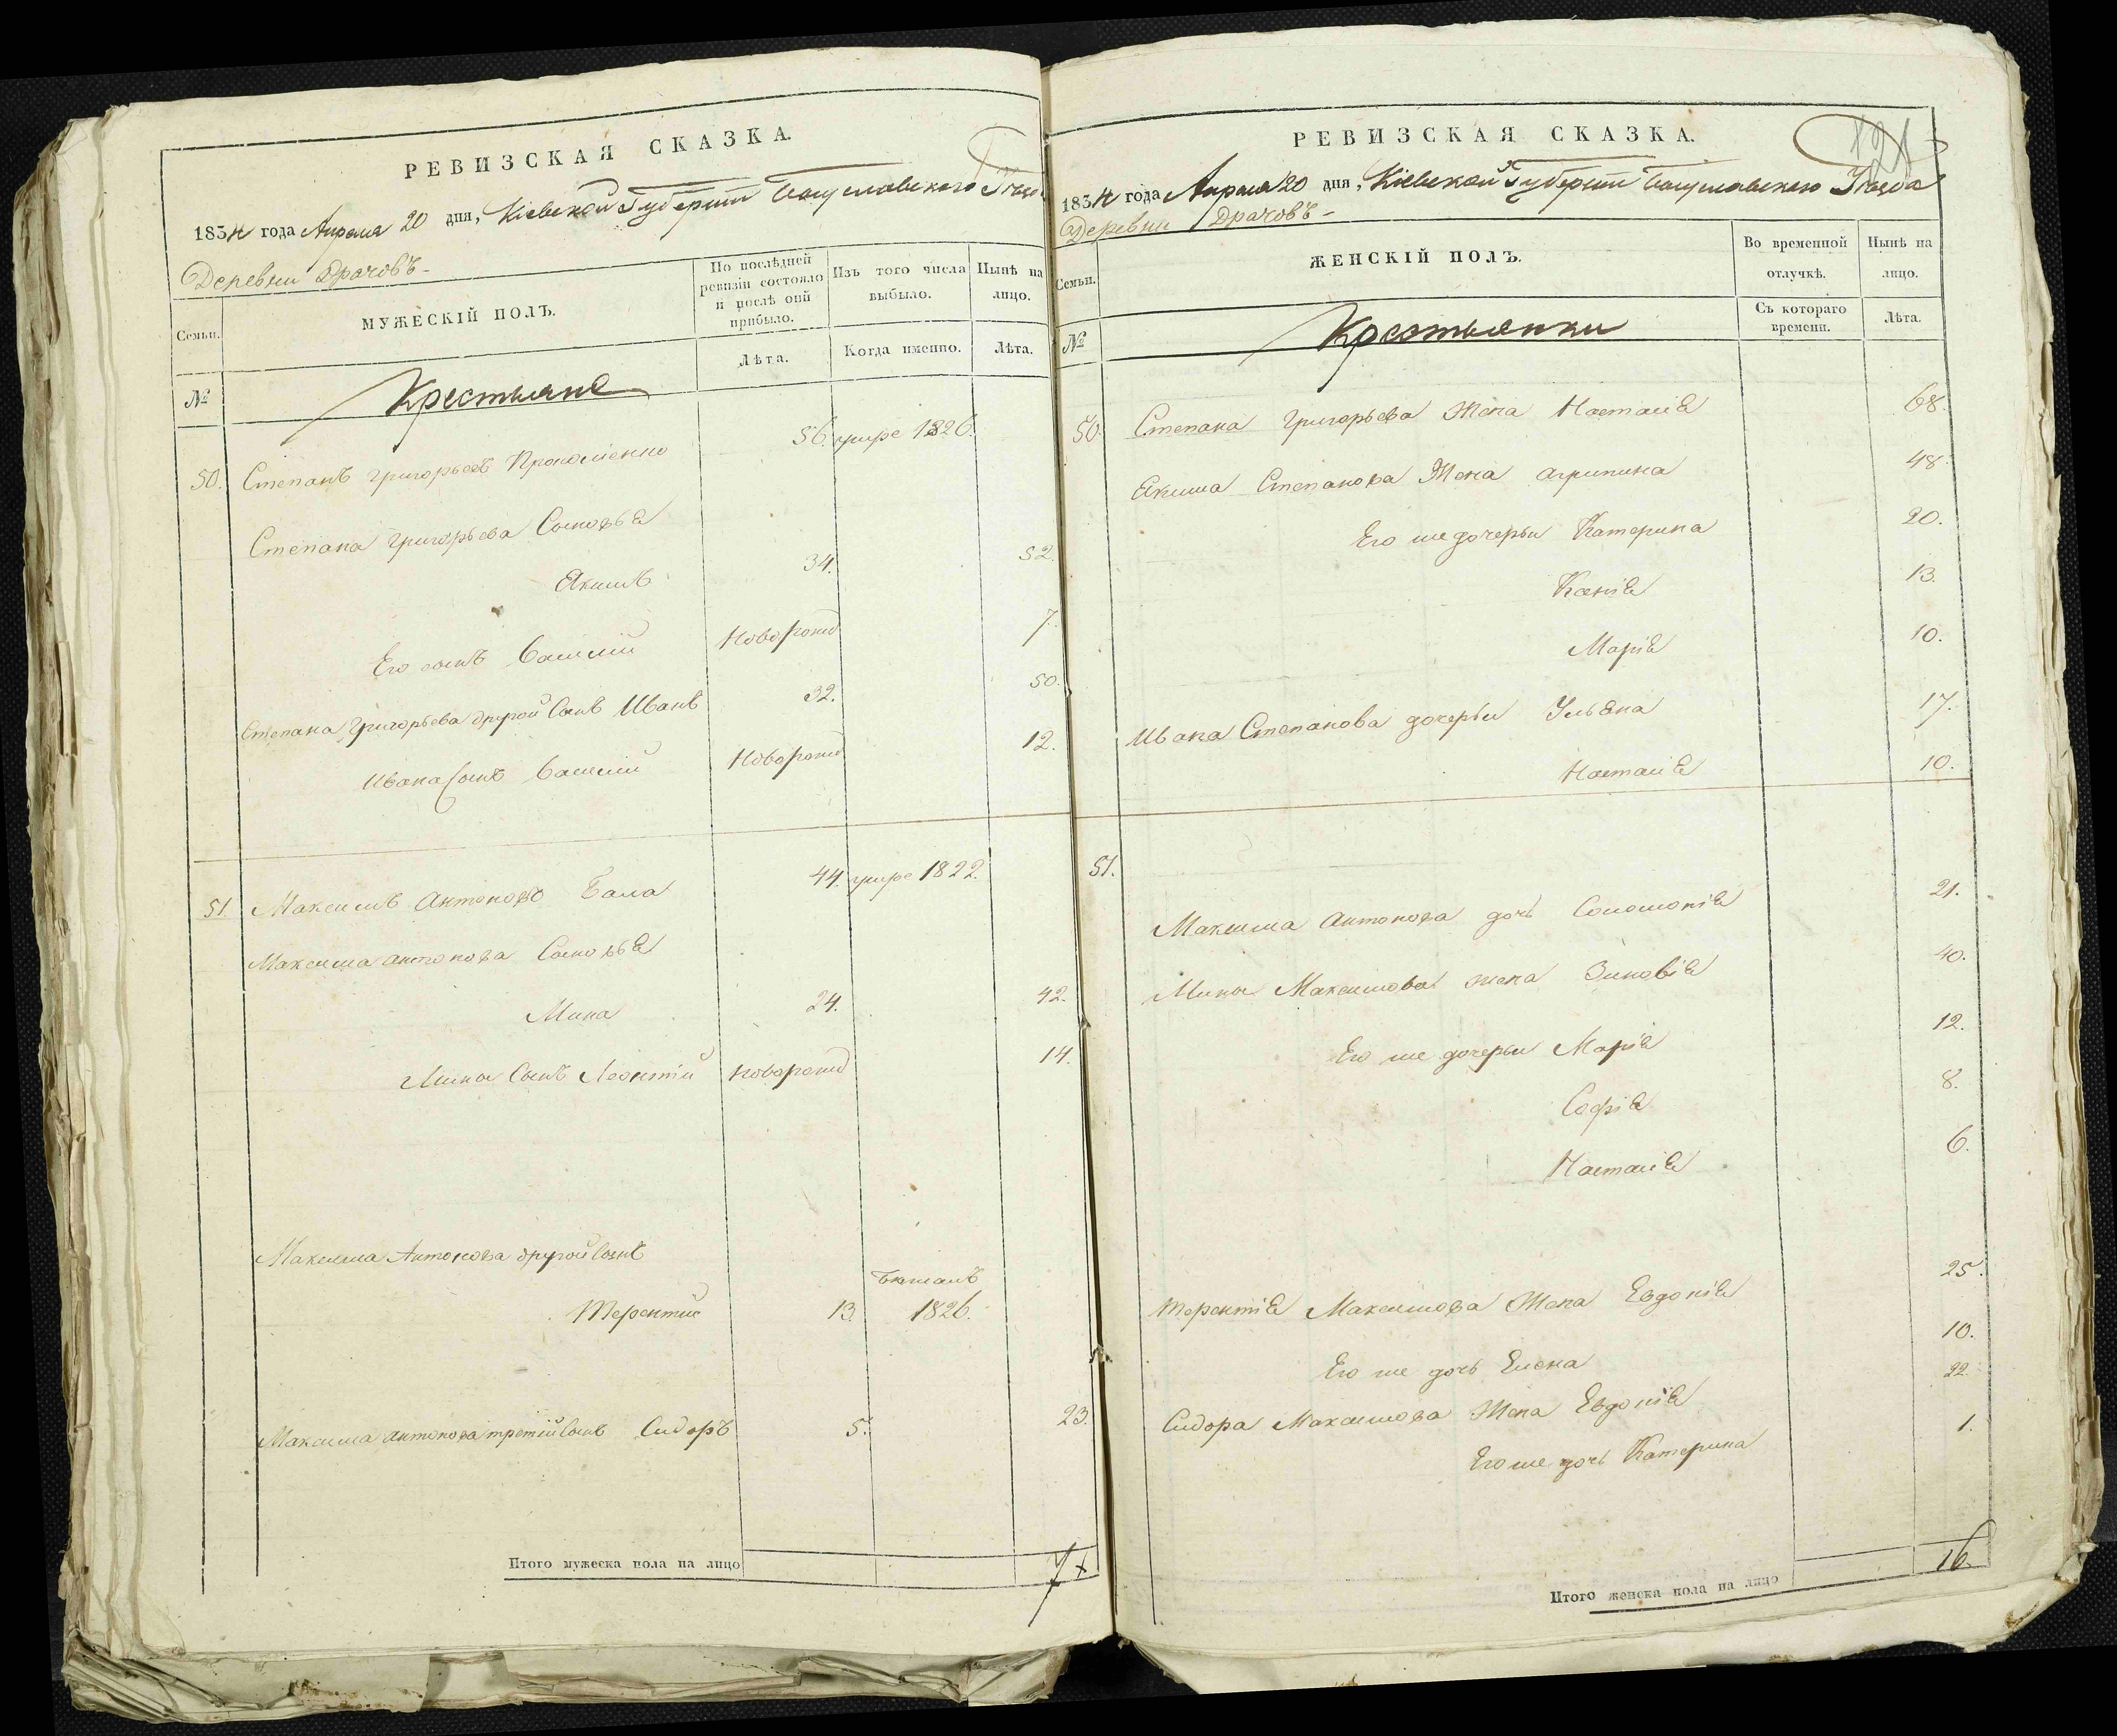 РЕВИЗСКАЯ СКАЗКА.
1834 года Апреля 20 дня, Кіевской Губерніи Богуславскаго Уѣзда
Деревни Драчовъ
Семьи.
МУЖЕСКІЙ ПОЛЪ.
По послѣдней ревизіи состояло и послѣ оной прибыло.
Изъ того числа выбыло.
Нынѣ на лицо.
№
Лѣта.
Когда именно.
Лѣта.
Крестьяне
50. Степанъ Григорьевъ 56. умре 1826.
Степана Григорьева Сыновья
Якимъ 34. 52.
Его сынъ Василій Новорожд 7.
Степана Григорьева другой Сынъ Иванъ 32. 50.
Ивана Сынъ Василій Новорожд 12.
51 Максимъ Антоновъ Бала 44. умре 1822.
Максима Антонова Сыновья
Мина 24. 42.
Мины Сынъ Леонтій новорожд 14.
Максима Антонова другой сынъ
Терентій 13. бѣжалъ 1826.
Максима Антонова третій Сынъ Сидоръ 5. 23.
Итого мужеска пола на лицо 7
РЕВИЗСКАЯ СКАЗКА.
121
1834 года Апреля 20 дня, Кіевской Губерніи Богуславскаго Уѣзда
Деревни Драчовъ
Семьи.
ЖЕНСКІЙ ПОЛЪ.
Во временной отлучкѣ.
Нынѣ на лицо.
№
Съ котораго времени.
Лѣта.
Крестьянки
50. Степана Григорьева Жена Наталія 68.
Якима Степанова Жена Агрипина 48.
Его же дочерьи Катерина 20.
Ксенія 13.
Марія 10.
Ивана Степанова дочерьи Ульяна 17.
Наталія 10.
51.
Максима Антонова дочь Соломонія 21.
Мины Максимова жена Зиновія 40.
Его же дочерьи Марія 12.
Софія 8.
Наталія 6.
Терентія Максимова Жена Евдокія 25.
Его же дочь Елена 10.
Сидора Максимова Жена Евдокія 22.
Его же дочь Катерина 1.
Итого женска пола на лицо 16.